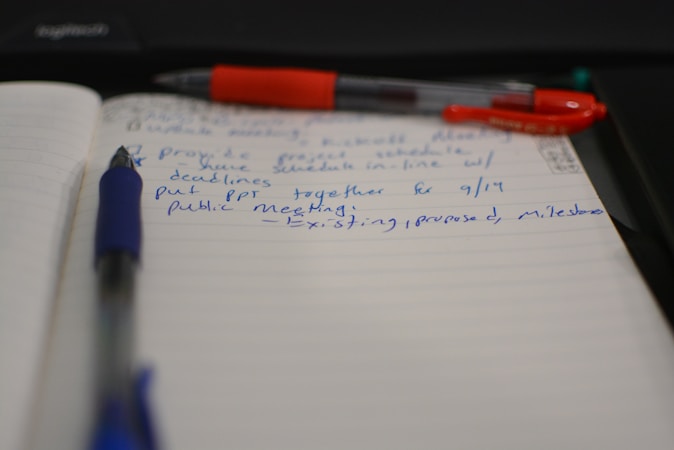 logitech
update meeting, kickoff meeting
provide project schedule
- have schedule in-line w/
deadlines
put PPT together for 9/14
public meeting.
- Existing, proposed, milestone